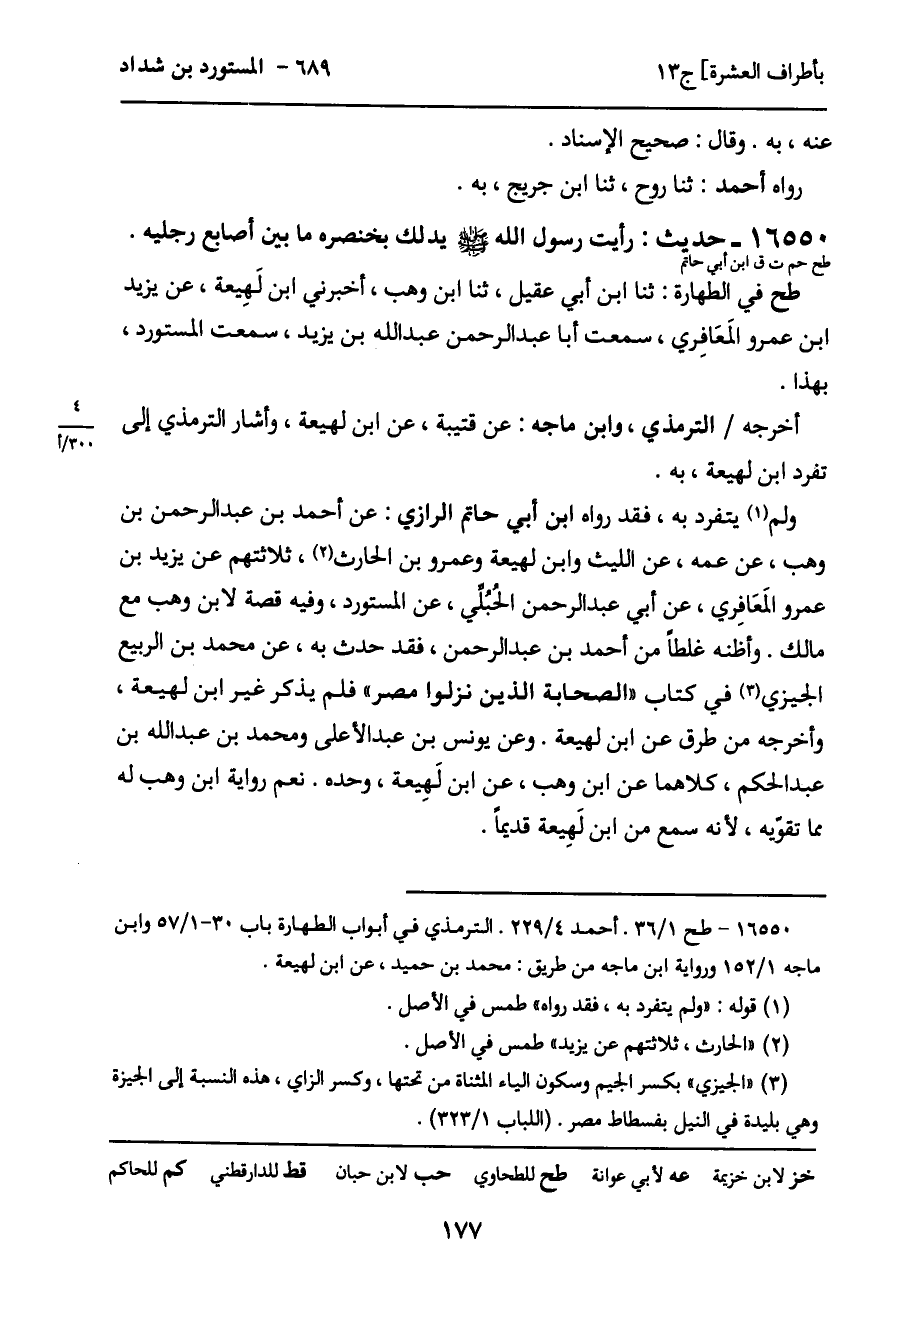 بأطراف العشرة] ج١٣
٦٨٩ - المستورد بن شداد
عنه ، به . وقال : صحيح الإسناد .
رواه أحمد : ثنا روح ، ثنا ابن جريج ، به .
١٦٥٥٠ - حديث : رأيت رسول الله ﷺ يدلك بخنصره ما بين أصابع رجليه .
طح حم ت ق ابن أبي حاتم
طح في الطهارة : ثنا ابن أبي عقيل ، ثنا ابن وهب ، أخبرني ابن لَهِيعة ، عن يزيد
ابن عمرو المَعَافِري ، سمعت أبا عبدالرحمن عبدالله بن يزيد ، سمعت المستورد ،
بهذا .
أخرجه / الترمذي ، وابن ماجه : عن قتيبة ، عن ابن لهيعة ، وأشار الترمذي إلى
٤
٣٠٠/أ
تفرد ابن لهيعة ، به .
ولم(١) يتفرد به ، فقد رواه ابن أبي حاتم الرازي : عن أحمد بن عبدالرحمن بن
وهب ، عن عمه ، عن الليث وابن لهيعة وعمرو بن الحارث(٢) ، ثلاثتهم عن يزيد بن
عمرو المَعَافِري ، عن أبي عبدالرحمن الحُبُلِّي ، عن المستورد ، وفيه قصة لابن وهب مع
مالك . وأظنه غلطاً من أحمد بن عبدالرحمن ، فقد حدث به ، عن محمد بن الربيع
الجيزي(٣) في كتاب «الصحابة الذين نزلوا مصر» فلم يذكر غير ابن لهيعة ،
وأخرجه من طرق عن ابن لهيعة . وعن يونس بن عبدالأعلى ومحمد بن عبدالله بن
عبدالحكم ، كلاهما عن ابن وهب ، عن ابن لَهِيعة ، وحده . نعم رواية ابن وهب له
مما تقوّيه ، لأنه سمع من ابن لَهِيعة قديماً .
١٦٥٥٠ - طح ٣٦/١ . أحمد ٢٢٩/٤ . الترمذي في أبواب الطهارة باب ٣٠-٥٧/١ وابن
ماجه ١٥٢/١ ورواية ابن ماجه من طريق : محمد بن حميد ، عن ابن لهيعة .
(١) قوله : «ولم يتفرد به ، فقد رواه» طمس في الأصل .
(٢) «الحارث ، ثلاثتهم عن يزيد» طمس في الأصل .
(٣) «الجيزي» بكسر الجيم وسكون الياء المثناة من تحتها ، وكسر الزاي ، هذه النسبة إلى الجيزة
وهي بليدة في النيل بفسطاط مصر . (اللباب ٣٢٣/١) .
خز لابن خزيمة عه لأبي عوانة طح للطحاوي حب لابن حبان قط للدارقطني كم للحاكم
١٧٧